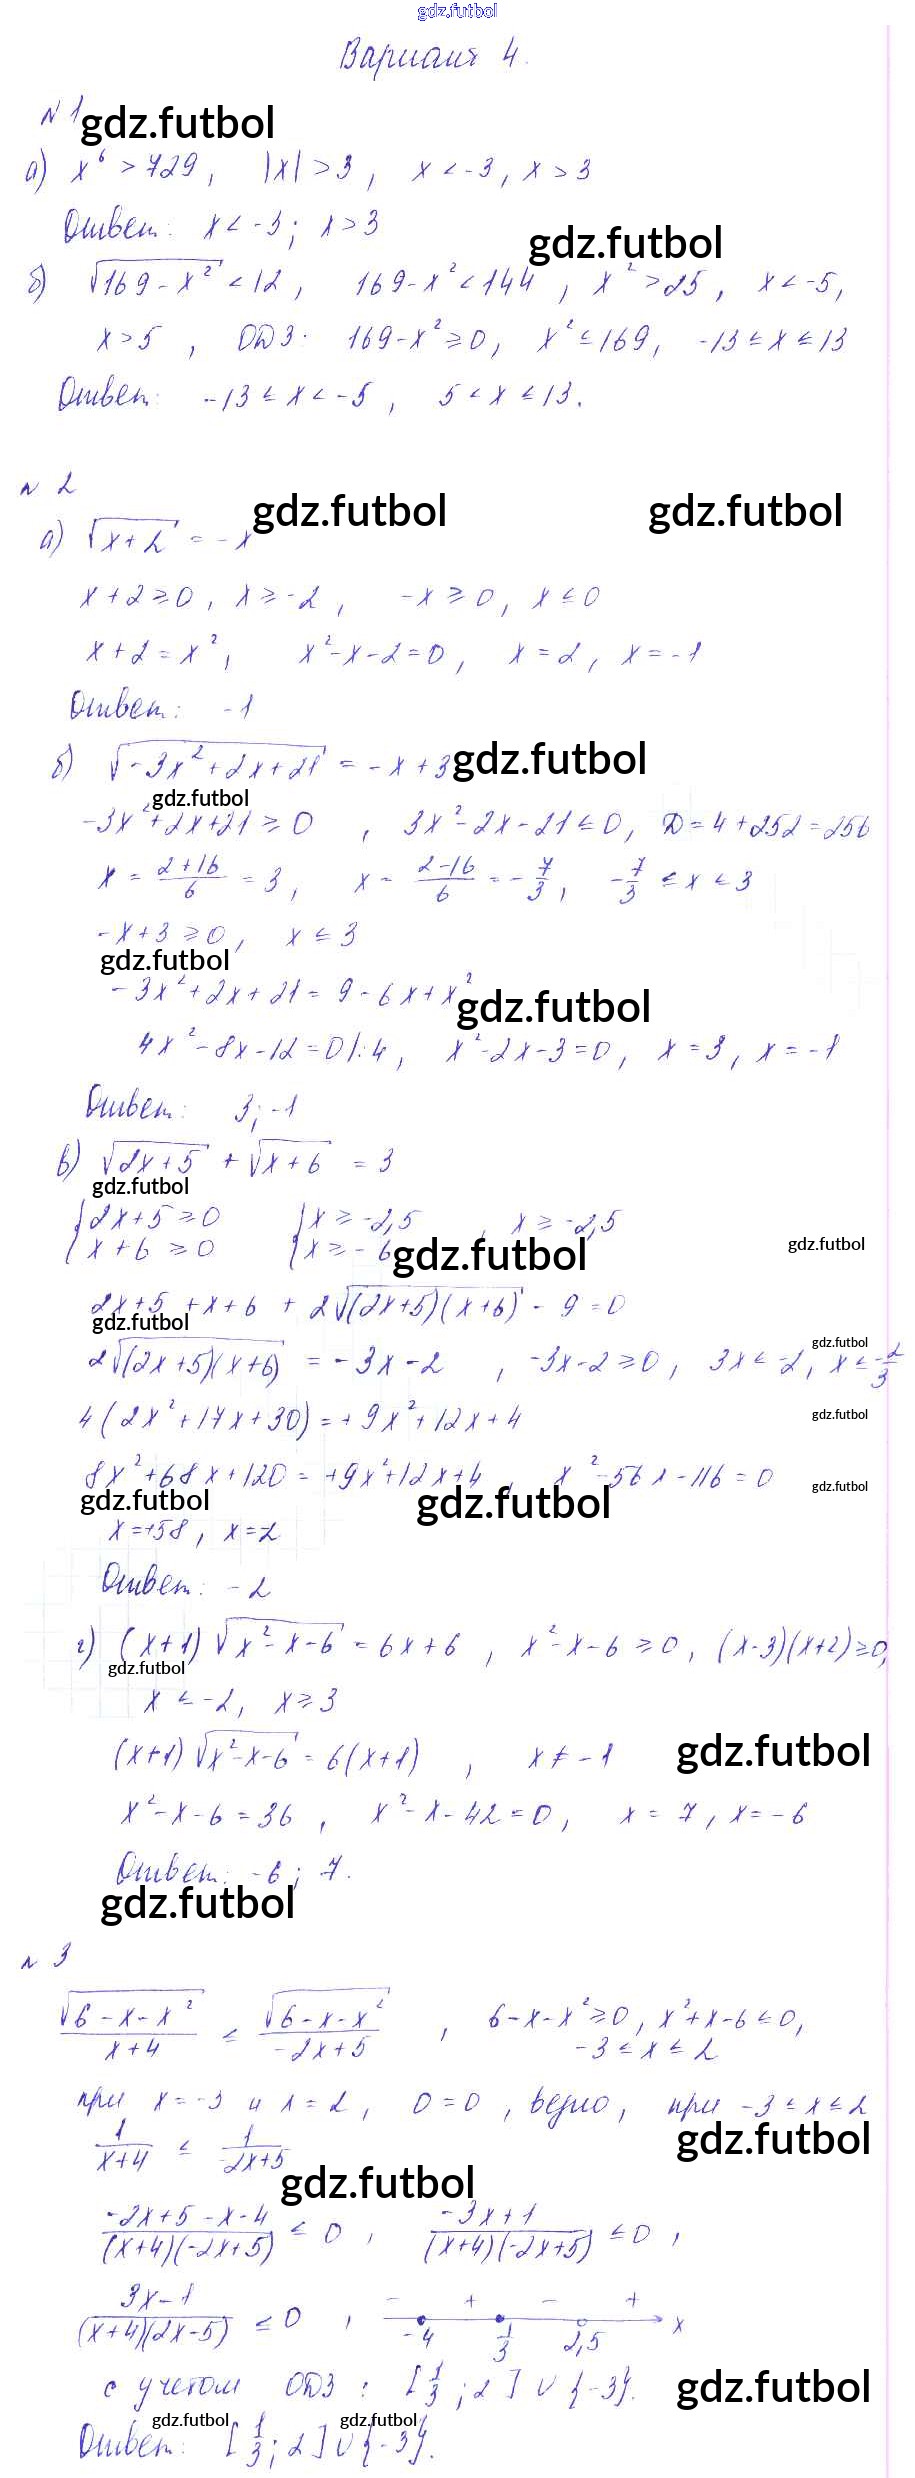 gdz.futbol
Вариант 4.
N 1 gdz.futbol
а) x⁶ > 729, |x| > 3, x < -3, x > 3
Ответ: x < -3; x > 3
gdz.futbol
б) √(169 - x²) < 12, 169 - x² < 144, x² > 25, x < -5,
x > 5, ОДЗ: 169 - x² ≥ 0, x² ≤ 169, -13 ≤ x ≤ 13
Ответ: -13 ≤ x < -5, 5 < x ≤ 13.
N 2
gdz.futbol gdz.futbol
а) √(x + 2) = -x
x + 2 ≥ 0, x ≥ -2, -x ≥ 0, x ≤ 0
x + 2 = x², x² - x - 2 = 0, x = 2, x = -1
Ответ: -1
б) √(-3x² + 2x + 21) = -x + 3 gdz.futbol
gdz.futbol
-3x² + 2x + 21 ≥ 0, 3x² - 2x - 21 ≤ 0, D = 4 + 252 = 256
x = (2 + 16)/6 = 3, x = (2 - 16)/6 = -7/3, -7/3 ≤ x ≤ 3
-x + 3 ≥ 0, x ≤ 3
gdz.futbol
-3x² + 2x + 21 = 9 - 6x + x² gdz.futbol
4x² - 8x - 12 = 0 |:4, x² - 2x - 3 = 0, x = 3, x = -1
Ответ: 3; -1
в) √(2x + 5) + √(x + 6) = 3
gdz.futbol
{2x + 5 ≥ 0 {x ≥ -2,5, x ≥ -2,5
{x + 6 ≥ 0 {x ≥ -6 gdz.futbol gdz.futbol
2x + 5 + x + 6 + 2√((2x + 5)(x + 6)) - 9 = 0
gdz.futbol
gdz.futbol
2√((2x + 5)(x + 6)) = -3x - 2, -3x - 2 ≥ 0, 3x ≤ -2, x ≤ -2/3
4(2x² + 17x + 30) = +9x² + 12x + 4 gdz.futbol
8x² + 68x + 120 = +9x² + 12x + 4, x² - 56x - 116 = 0 gdz.futbol
gdz.futbol gdz.futbol
x = +58, x = -2
Ответ: -2
г) (x + 1)√(x² - x - 6) = 6x + 6, x² - x - 6 ≥ 0, (x - 3)(x + 2) ≥ 0,
gdz.futbol
x ≤ -2, x ≥ 3
(x + 1)√(x² - x - 6) = 6(x + 1), x ≠ -1 gdz.futbol
x² - x - 6 = 36, x² - x - 42 = 0, x = 7, x = -6
Ответ: -6; 7.
gdz.futbol
N 3
√(6 - x - x²)/(x + 4) ≤ √(6 - x - x²)/(-2x + 5), 6 - x - x² ≥ 0, x² + x - 6 ≤ 0,
-3 ≤ x ≤ 2
при x = -3 и x = 2, 0 = 0, верно, при -3 ≤ x ≤ 2
gdz.futbol
1/(x + 4) ≤ 1/(-2x + 5)
gdz.futbol
(-2x + 5 - x - 4)/((x + 4)(-2x + 5)) ≤ 0, (-3x + 1)/((x + 4)(-2x + 5)) ≤ 0,
(3x - 1)/((x + 4)(2x - 5)) ≤ 0, - + - +
-4 1/3 2,5 x
с учетом ОДЗ: [1/3; 2] ∪ {-3}. gdz.futbol
gdz.futbol gdz.futbol
Ответ: [1/3; 2] ∪ {-3}.